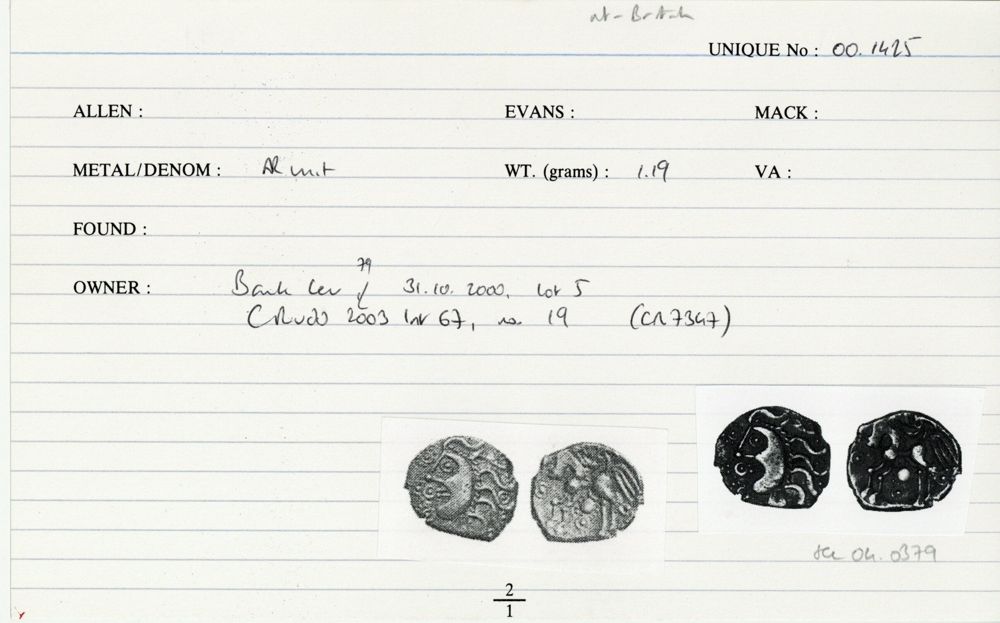 UNIQUE No : 00.1425
ALLEN : EVANS : MACK :
METAL/DENOM : AR unit WT. (grams) : 1.19 VA :
FOUND :
OWNER : Bank Leu 79 31.10.2000, lot 5
CRudd 2003 list 67, no. 19 (CR7347)
04.0379
2
1